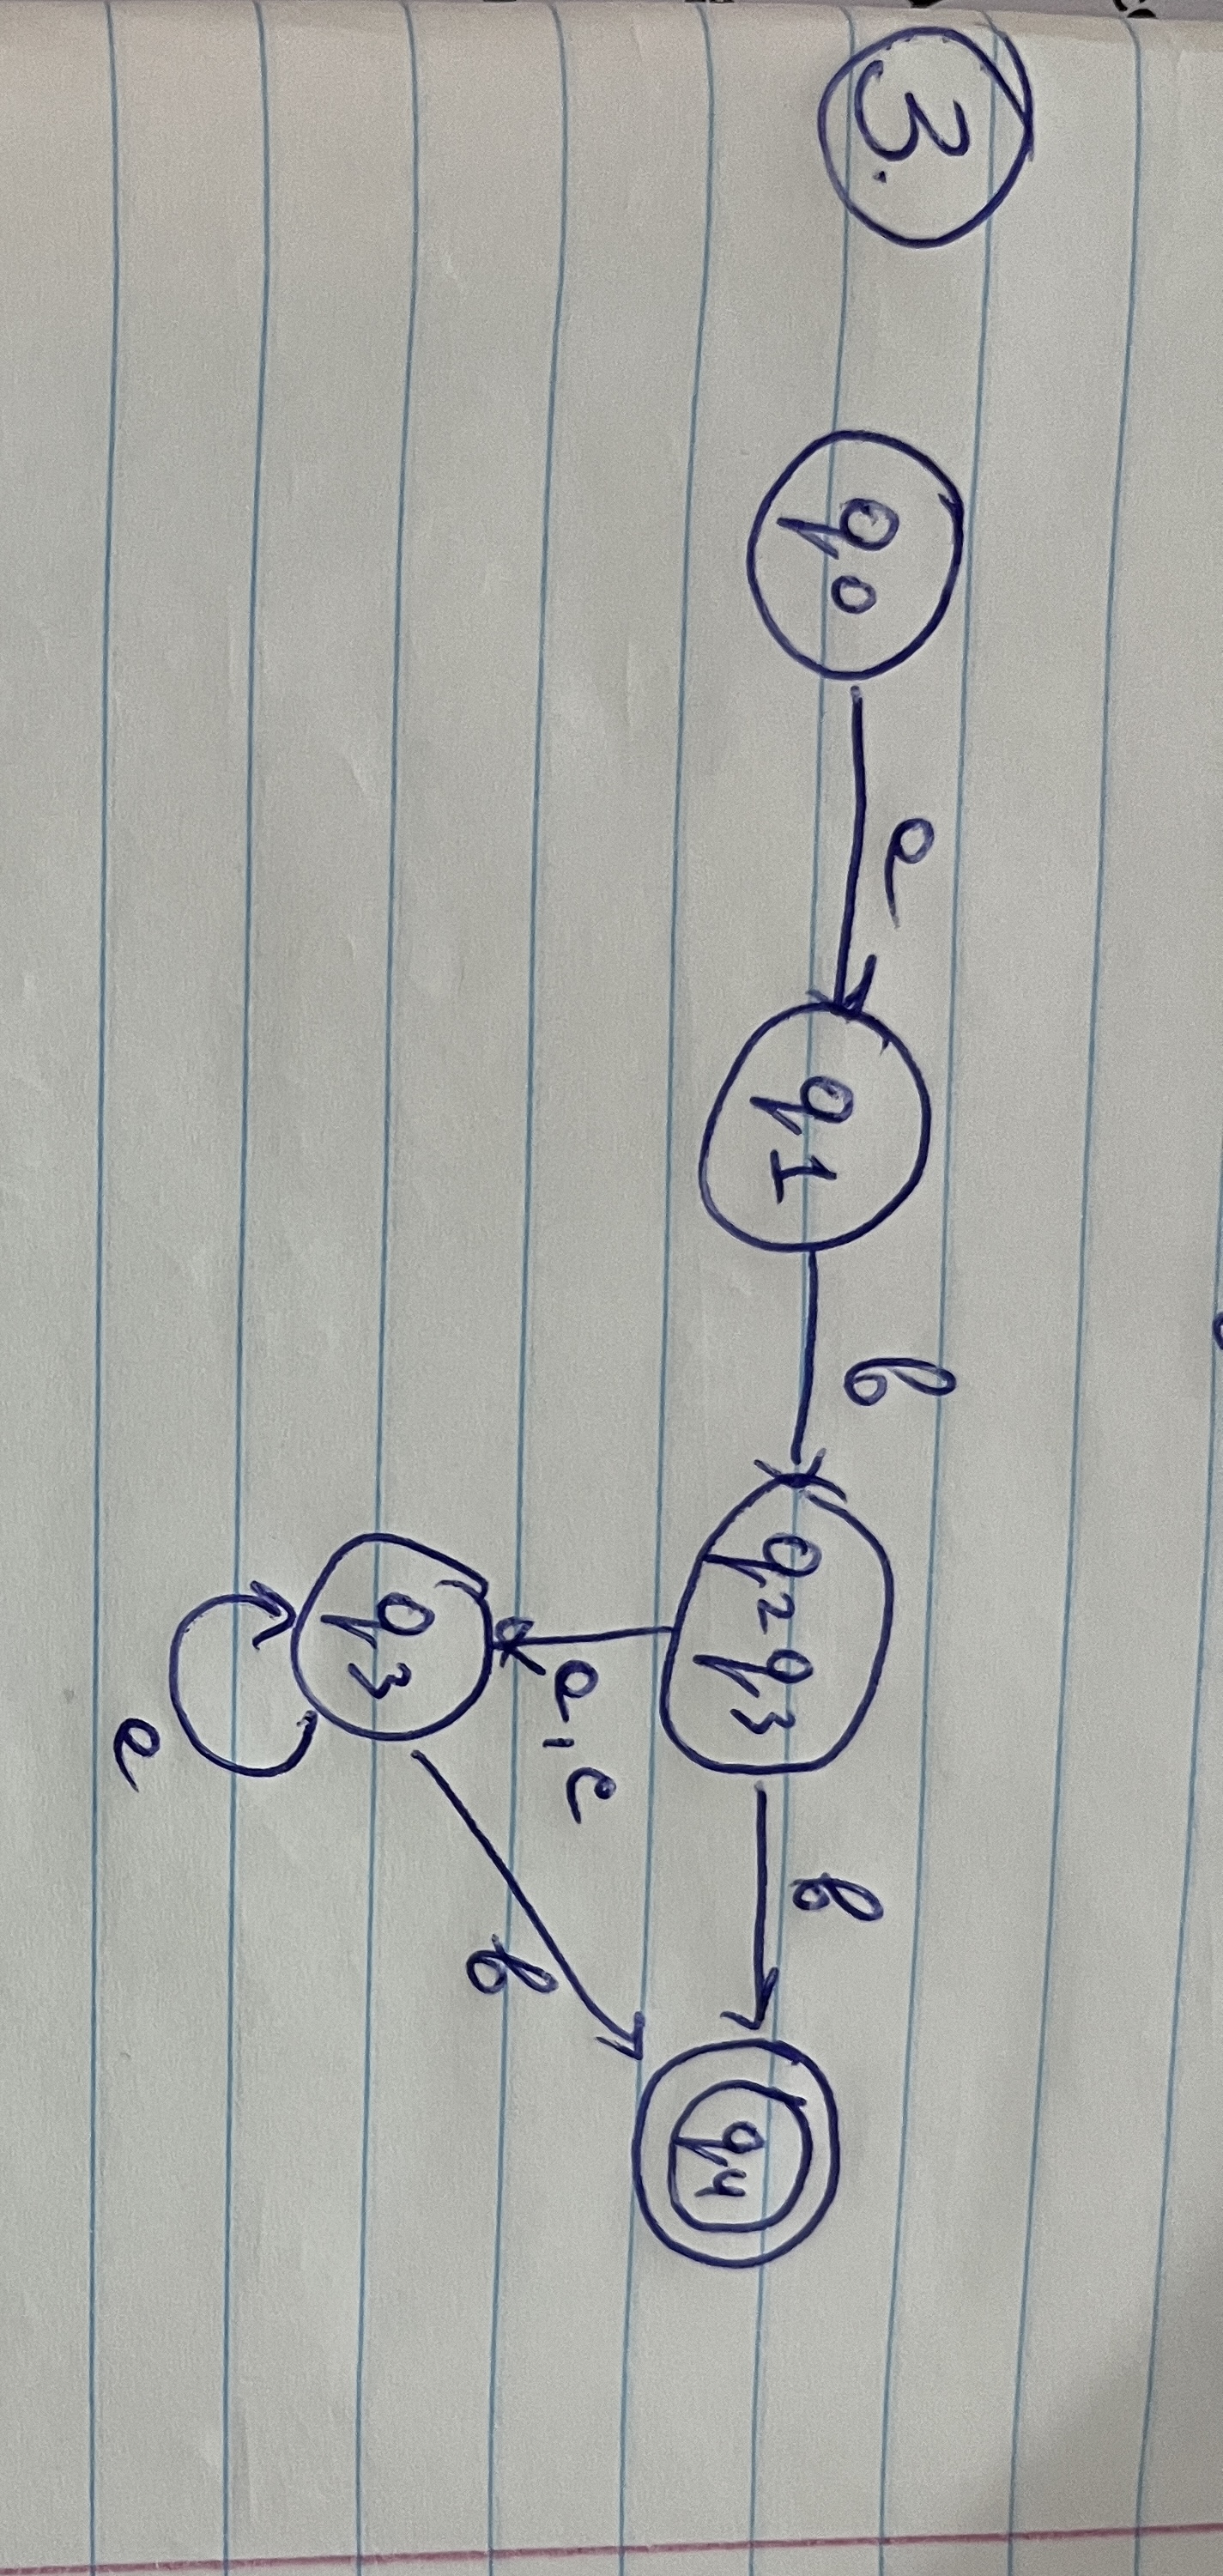 3.
q0 a q1 b q2q3 b q4
a, c
b
q3
a